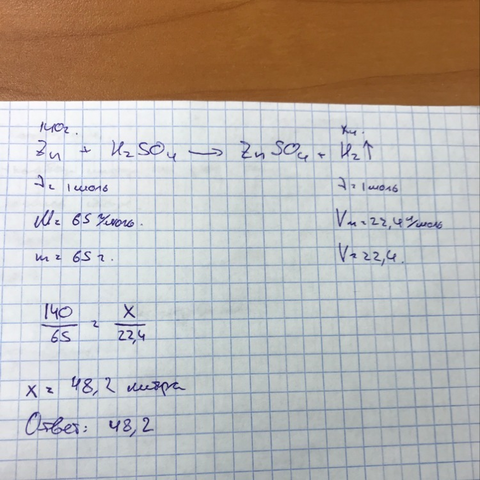 140г. xл.
Zn + H₂SO₄ → ZnSO₄ + H₂↑
λ = 1 моль λ = 1 моль
M = 65 г/моль. Vм = 22,4 л/моль
m = 65 г. V = 22,4.
140/65 = x/22,4
x = 48,2 литра
Ответ: 48,2